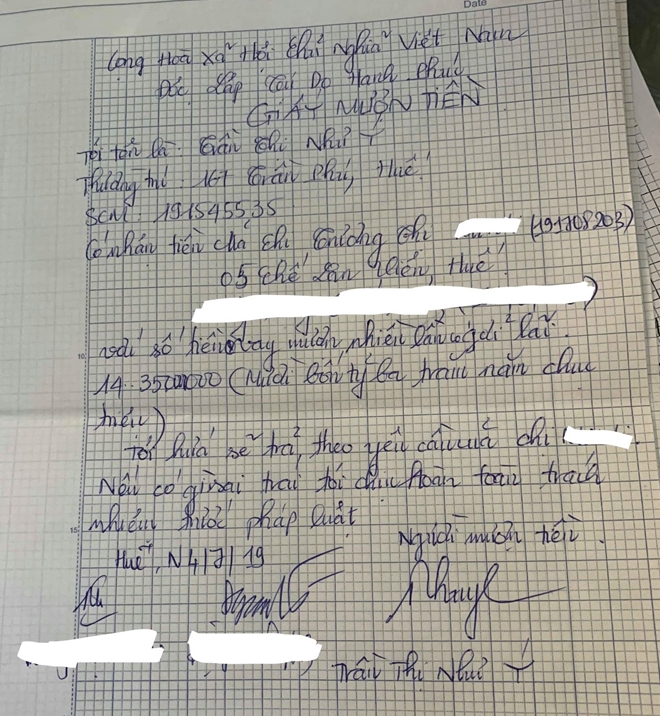 Date
Cộng Hoà Xã Hội Chủ Nghĩa Việt Nam
Độc Lập Tự Do Hạnh Phúc
GIẤY MƯỢN TIỀN
Tôi tên là: Trần Thị Như Ý
Thường trú: 167 Trần Phú, Huế.
SCM: 191545535
Có nhận tiền của chị Trương Thị (191708203)
05 Chế Lan Viên, Huế.
với số tiền vay mượn nhiều lần gởi lãi.
14.350000000 (Mười bốn tỷ ba trăm năm chục
triệu)
Tôi hứa sẽ trả, theo yêu cầu của chị
Nếu có gì sai trái tôi chịu hoàn toàn trách
nhiệm trước pháp luật
Huế, N 4/7/19
Người mượn tiền.
Trần Thị Như Ý